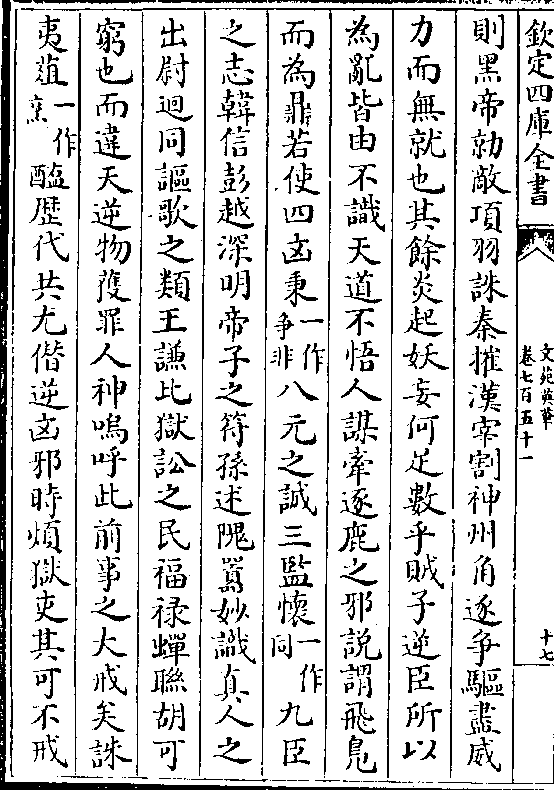 欽定四庫全書
文苑英華
卷七百五十一
十七
則黑帝勍敵項羽誅秦摧漢宰割神州角逐爭驅盡威
力而無就也其餘炎起妖妄何足數乎賊子逆臣所以
為亂皆由不識天道不悟人謀牽逐鹿之邪說謂飛鳧
而為鼎若使四凶秉一作爭非八元之誠三監懷一作同九臣
之志韓信彭越深明帝子之符孫述隗嚻妙識真人之
出尉迥同謳歌之類王謙比獄訟之民福祿蟬聯胡可
窮也而違天逆物獲罪人神嗚呼此前事之大戒矣誅
夷葅一作烹醢歴代共尤僭逆凶邪時煩獄吏其可不戒